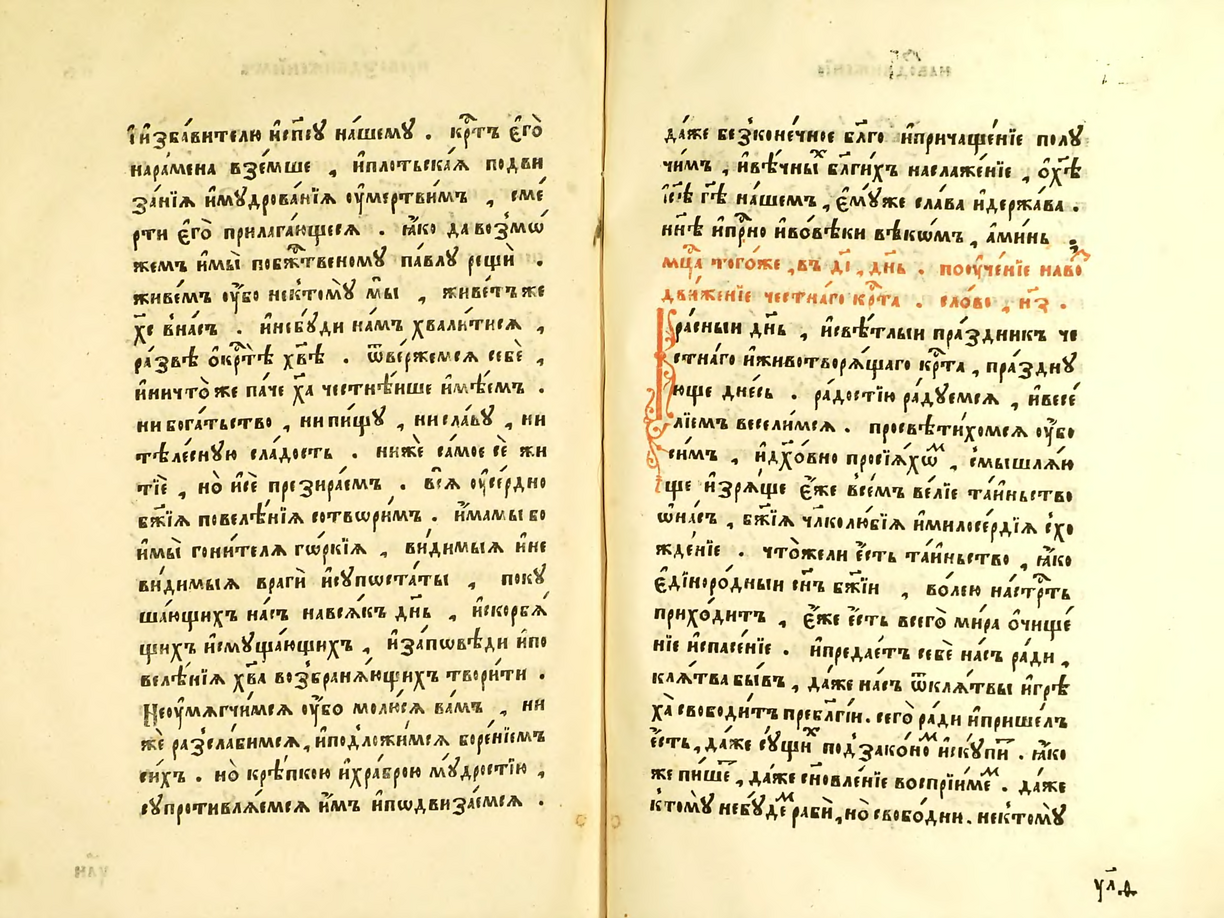 и҆и҆зба́вителю и҆сп҃сꙋ на́шемꙋ . крⷭ҇тъ є҆го̀
нара́мена взе́мше , и҆пло́тьскаѧ подви
за́нїѧ и҆мꙋдрова́нїѧ ᲂу҆мертви́мъ , сме́
рти є҆го̀ прилага́ющесѧ . ꙗ҆́ко да возмѡ́
жемъ и҆мы̀ побжⷭ҇твеномꙋ па́влꙋ рещѝ .
живе́мъ ᲂу҆́бо нектомꙋ̀ мы̀ , живе́тъже
хⷭ҇е в̾на́съ . и҆небꙋ́ди на́мъ хвали́тисѧ ,
ра́звѣ ѡ҆крⷭ҇тѣ̀ хв҃ѣ . ѿве́ржемсѧ себѐ ,
и҆ничто̀же па́че хⷭ҇а честнѣ́йше и҆мѣ́емъ .
ни бога́тьство , ни пи́щꙋ , ни сла́вꙋ , ни
тѣле́снꙋю сла́дость . нижѐ са́мое сѐ жи
тїѐ , но̀ и҆сѐ презира́емъ . всѧ̀ ᲂу҆се́рдно
бж҃їѧ повелѣ́нїѧ сотвори́мъ . и҆́мамы бо
и҆мы̀ гони́телѧ гѡ́ркїѧ , ви́димыѧ и҆не
ви́димыѧ врагѝ и҆сꙋпѡста́ты , покꙋ
ша́ющихъ на́съ навсѧ́къ дн҃ь , и҆скорбѧ́
щихъ и҆смꙋща́ющихъ , и҆за́пѡвѣди и҆по
велѣ́нїѧ хв҃а возбранѧ́ющихъ твори́ти .
Неᲂу҆мѧгчи́мсѧ ᲂу҆́бо молю́сѧ ва́мъ , ни
жѐ разсла́бимсѧ , и҆подложи́мсѧ боре́нїемъ
си́хъ . но̀ крѣ́пкою и҆хра́брою мꙋ́дростїю ,
сꙋпротивлѧ́емсѧ и҆̀мъ и҆пѡдвиза́емсѧ .
да́же безконе́чное бл҃го и҆причаще́нїе полꙋ
чи́мъ , и҆вѣ́чныⷯ бл҃ги́хъ наслажде́нїе , ѡ҆хⷭ҇ѣ̀
і҆с҃ѣ гд҃ѣ на́шемъ , є҆мꙋ́же сла́ва и҆держа́ва .
нн҃ѣ и҆прⷭ҇но и҆во́вѣки вѣкѡ́мъ , а҆ми́нь .
мцⷭ҇а того́же , въ д҃і , дн҃ь . поᲂуче́нїе наво
движе́нїе честна́го крⷭ҇та . сло́во , н҃з .
Кра́сныи дн҃ь , и҆свѣ́тлыи пра́здникъ че
стна́го и҆животворѧ́щаго крⷭ҇та , пра́зднꙋ
юще дне́сь . ра́достїю ра́дꙋемсѧ , и҆весе́
лїемъ весели́мсѧ . просвѣти́хомсѧ ᲂу҆́бо
си́мъ , и҆дх҃о́вно просїѧ́хѡⷨ , смышлѧ́ю
ще и҆зрѧ́ще є҆́же всѣ́мъ ве́лїе та́иньство
ѡ҆на́съ , бж҃їѧ чл҃колю́бїѧ и҆милосе́рдїѧ схо
жде́нїе . что́жели є҆́сть та́иньство , ꙗ҆́ко
є҆динѡро́дныи сн҃ъ бж҃їи , во́лею на́стрⷭ҇ть
прихо́дитъ , є҆́же є҆́сть всего̀ ми́ра ѡ҆чище́
нїе и҆спасе́нїе . и҆предае́тъ себѐ на́съ ра́ди ,
клѧ́тва бы́въ , да́же на́съ ѿклѧ́твы и҆грѣ
ха̀ свободи́тъ пребл҃гі́и . сего̀ ра́ди и҆прише́лъ
є҆́сть , да́же сꙋ́щиⷯ под̾зако́ноⷨ и҆скꙋ́пиⷮ . ꙗ҆́ко
же пи́шеⷮ , да́же сн҃овле́нїе воспрїи́меⷨ . да́же
ктомꙋ̀ небꙋ́деⷨ рабѝ , но̀ свобо́дни . нектомꙋ̀
ул҃ѳ